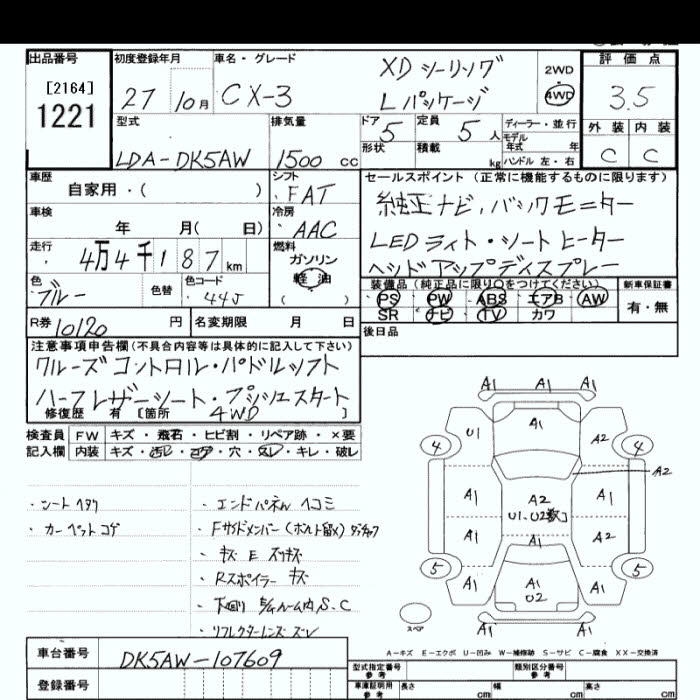 出品番号 初度登録年月 車名・グレード 評価点
[2164]
1221
27 10月 CX-3
XDツーリング
Lパッケージ
2WD
4WD
3.5
型式 排気量 ドア 定員 ディーラー・並行 外装 内装
LDA-DK5AW 1500 cc 5 5人 モデル年式 年
形状 積載 kg ハンドル 左・右 C C
車歴 シフト セールスポイント (正常に機能するものに限ります)
自家用・( ) FAT 純正ナビ、バックモニター
車検 冷房
年 月( 日) AAC LEDライト・シートヒーター
走行 燃料
4万4千187km ガソリン ヘッドアップディスプレー
軽油
( )
色 色替 色コード 装備品(純正品に限り○をつけてください) 新車保証書
ブルー 44J PS PW ABS エアB AW 有・無
SR ナビ TV カワ
R券 10120円 名変期限 月 日 後日品
注意事項申告欄(不具合内容等は具体的に記入して下さい)
クルーズコントロール・パドルシフト
ハーフレザーシート・プッシュスタート
修復歴 有 [箇所 4WD ]
検査員 FW キズ・飛石・ヒビ割・リペア跡・×要
記入欄 内装 キズ・汚レ・コゲ・穴・スレ・キレ・破レ
・シートヘタリ
・カーペットコゲ
・エンドパネル ヘコミ
・Fサイドメンバー(ボルト留メ)
・キズ E
・Rスポイラー キズ
・下廻り ルーム内 S、C
・リフレクターレンズ ズレ
A1 A1 A1
U1 A1 A2
4 4
A2
A1 A2 A1
U1、U2数コ
A1 A1 A2
5 5
A1 A1 A1
U2
A1 A1
スペア
A-キズ E-エクボ U-凹み W-補修跡 S-サビ C-腐食 XX-交換済
車台番号 DK5AW-107609
登録番号
型式指定番号 参考 類別区分番号 参考
車庫証明用 参考 長さ cm 幅 cm 高さ cm